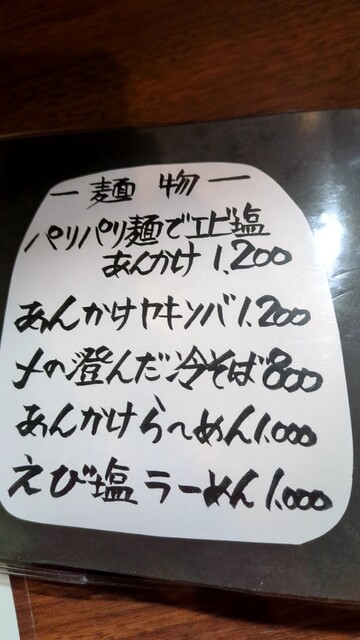 ー麺物ー
パリパリ麺でエビ塩
あんかけ 1,200
あんかけヤキソバ 1,200
〆の澄んだ冷そば 800
あんかけら〜めん 1,000
えび塩ラーめん 1,000